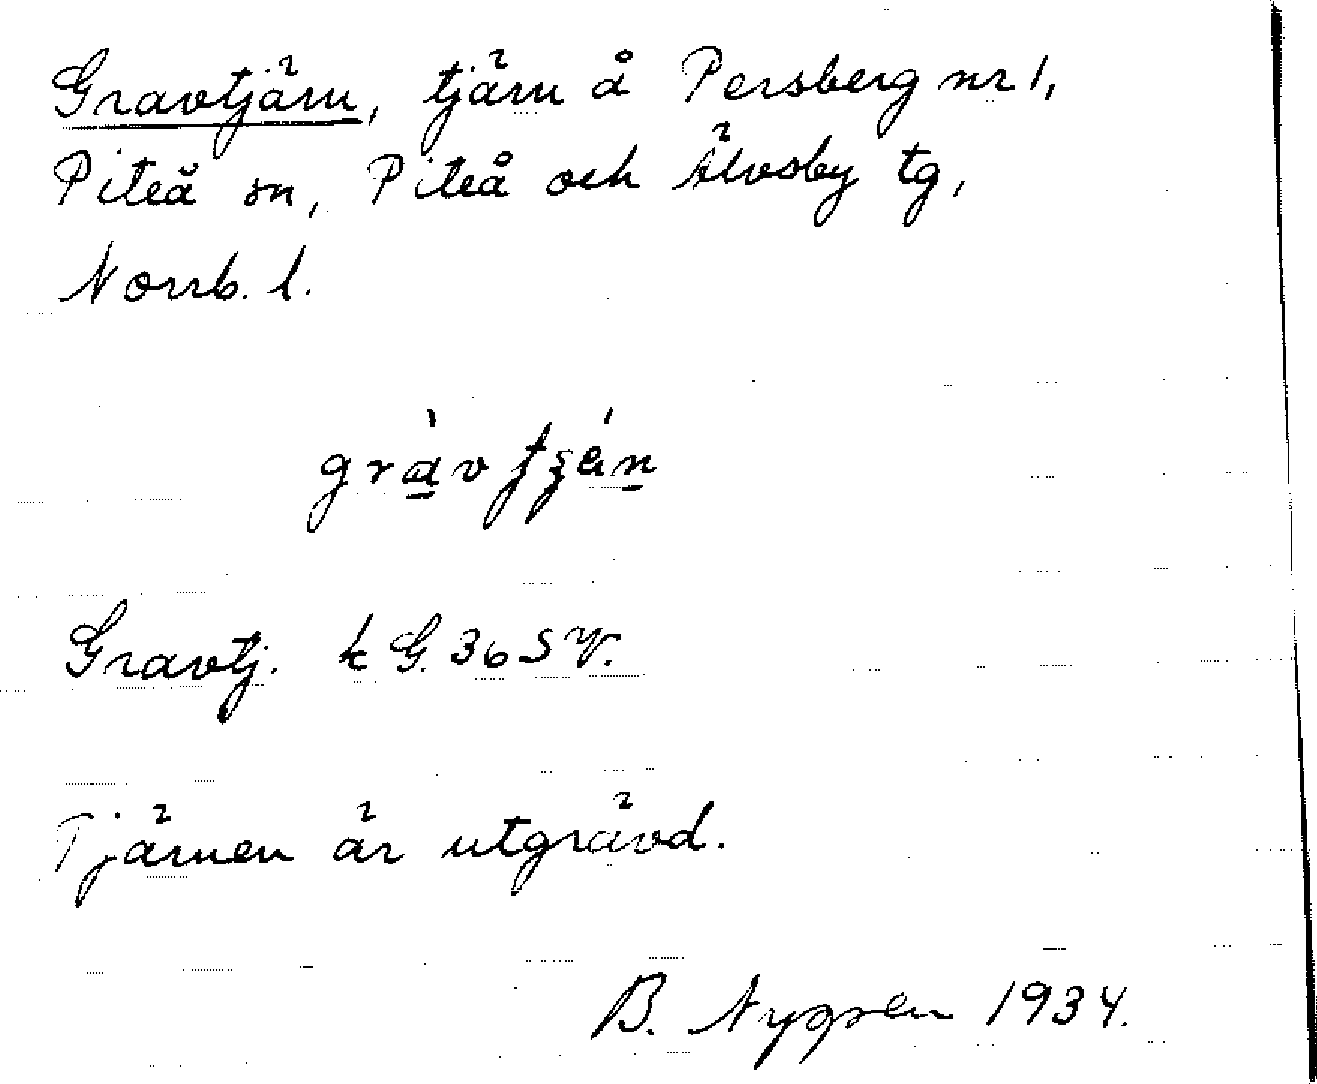 Gravtjärn, tjärn å Persberg nr 1,
Piteå sn, Piteå och Älvsby tg,
Norrb. l.
Gravtj. k G. 36 SV.
Tjärnen är utgrävd.
B. Nygren 1934.